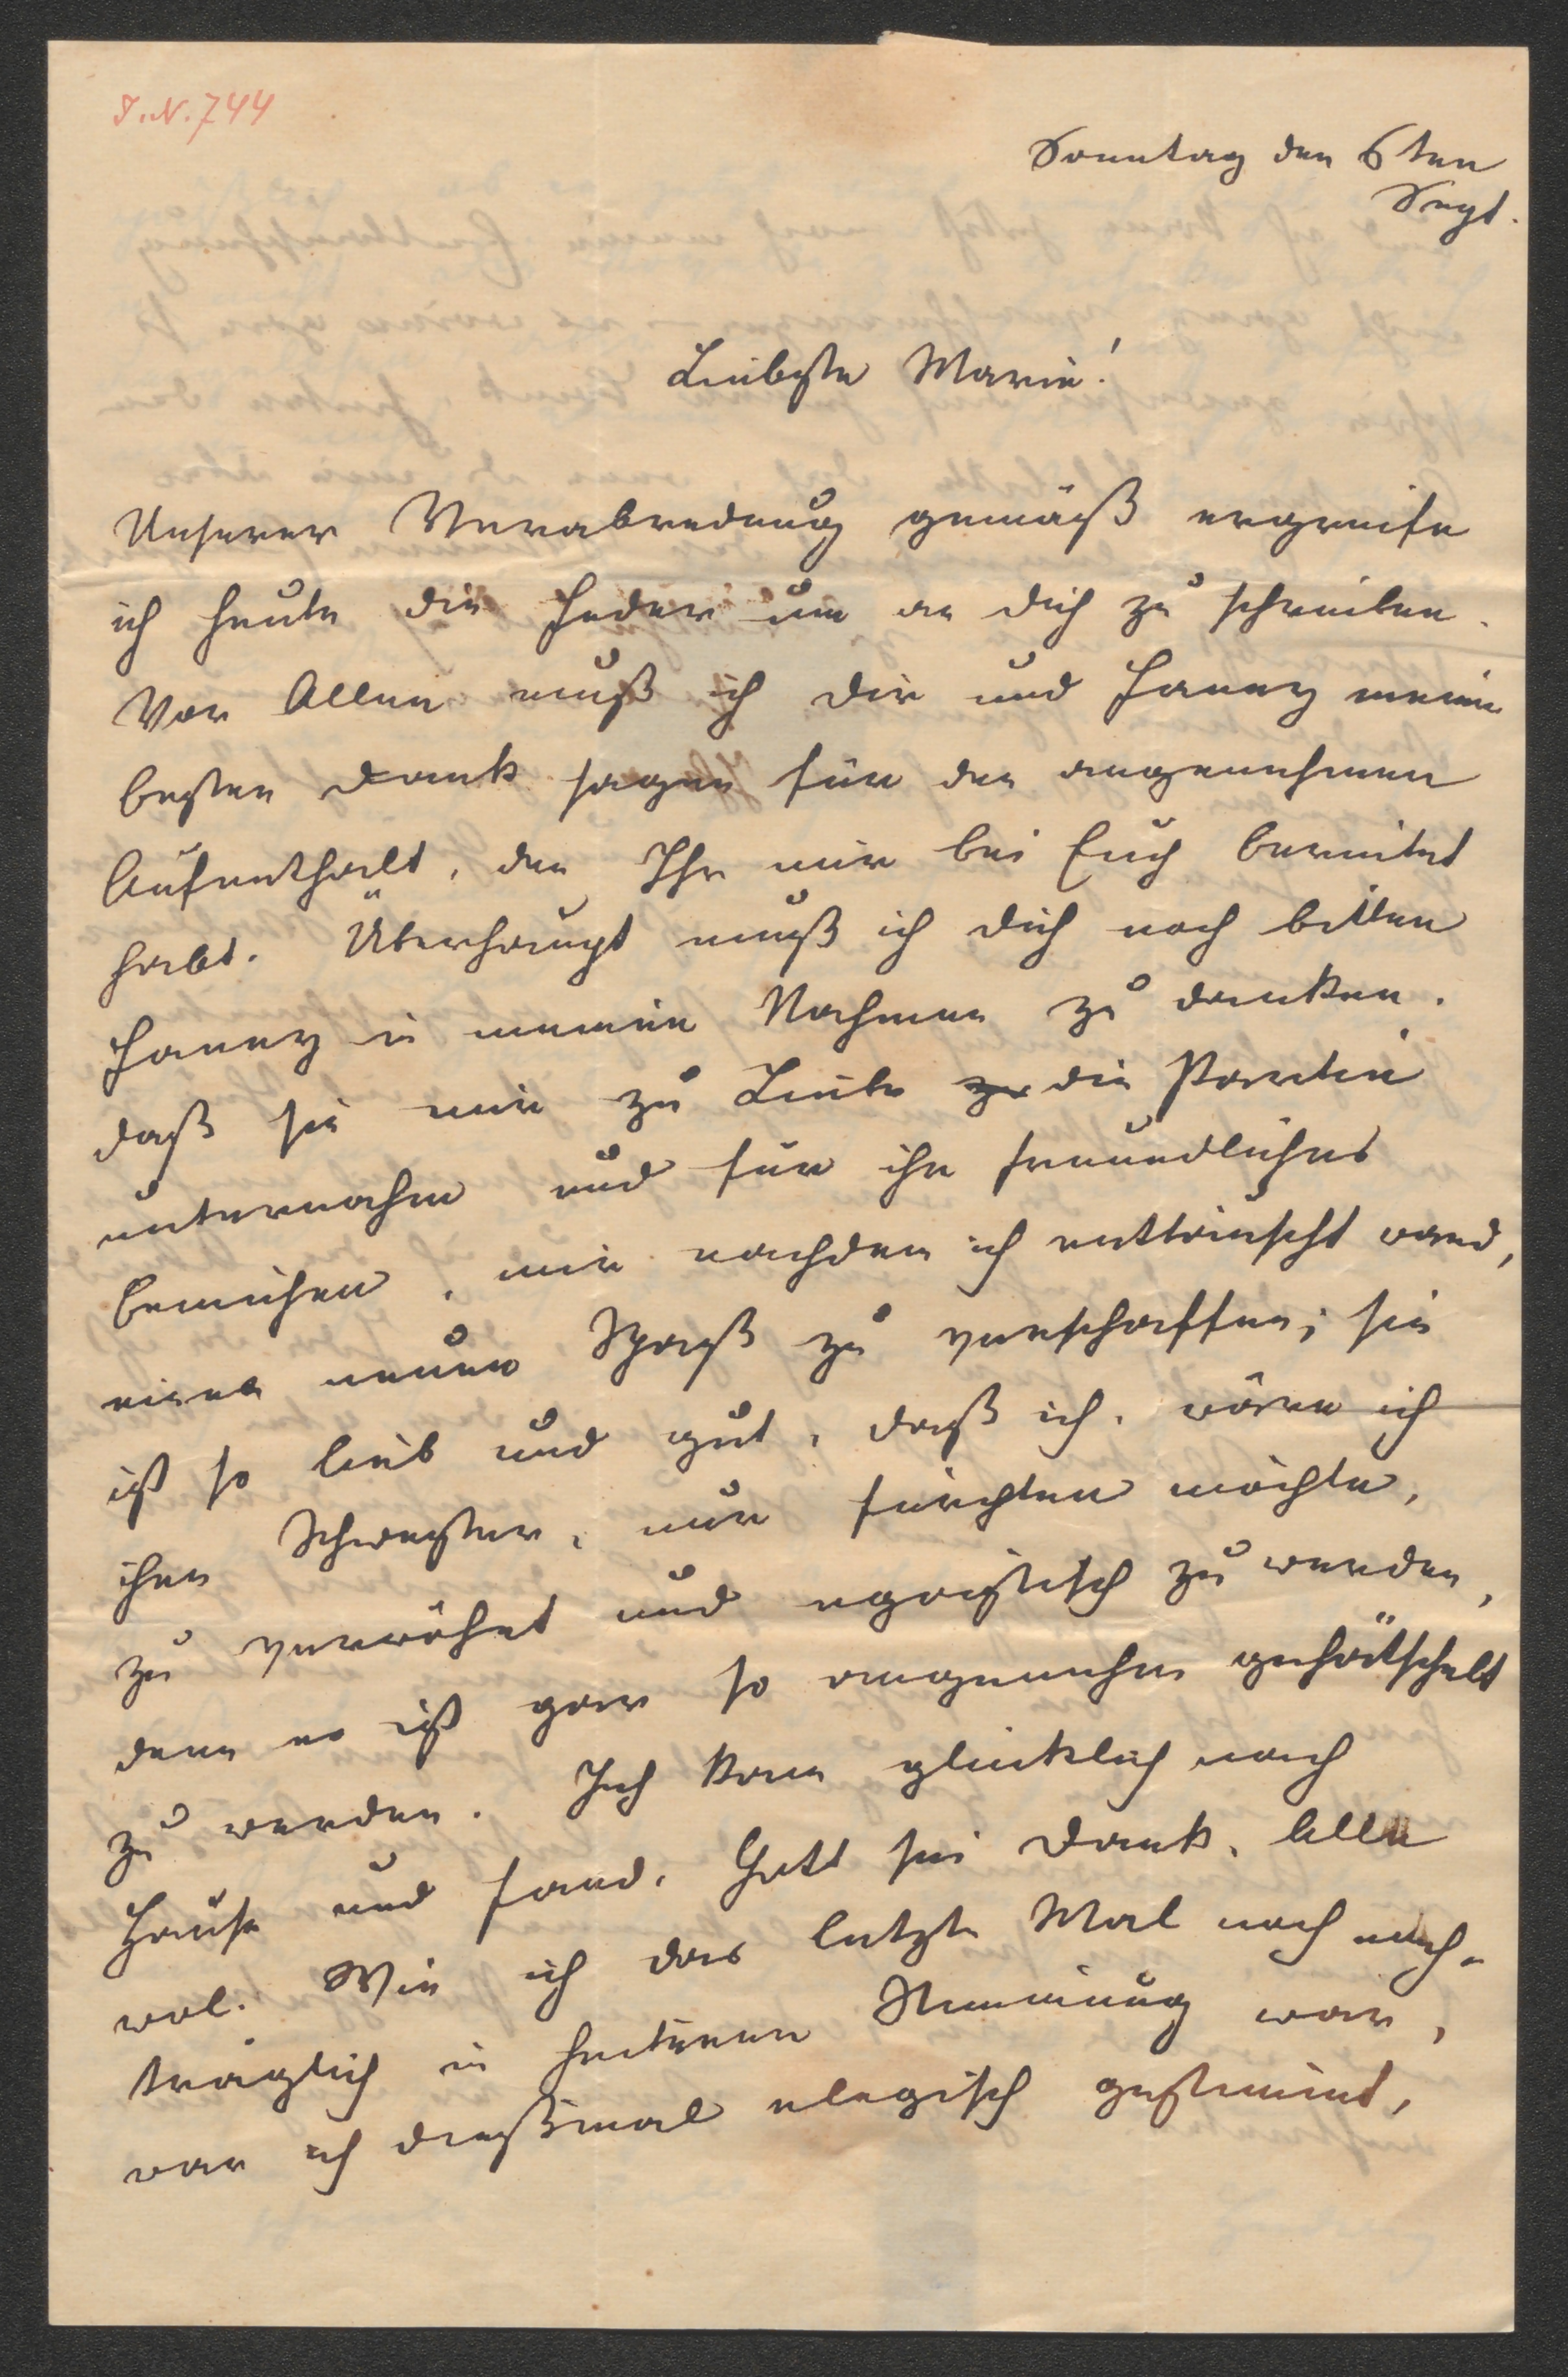 I.N. 744
Sonntag den 6ten
Sept.
Liebste Marie!
Unserer Verabredung gemäß ergreife
ich heute die Feder um an dich zu schreiben.
Vor Allen muß ich dir und Fanny meine
besten Dank sagen für den angenehmen
Aufenthalt, den Ihr mir bei Euch bereitet
habt. Überhaupt muß ich dich noch bitten
Fanny in meinen Nahmen zu danken.
daß sie mir zu Liebe die Partie
unternahm und für ihr freundliches
bemühen, mir nachdem ich enttäuscht ward,
einen neuen Spaß zu verschaffen; sie
ist so lieb und gut, daß ich, wären ich
ihre Schwester, nur fürchten möchte,
zu verwöhnt und egoistisch zu werden,
denn es ist gar so angenehm gehätschelt
zu werden. Ich kam glücklich nach
Hause und fand, Gott sei Dank, Alle
wol. Wie ich das letzte Mal noch nach-
träglich in heiteren Stimmung war,
war ich dießmal elegisch gestimmt,